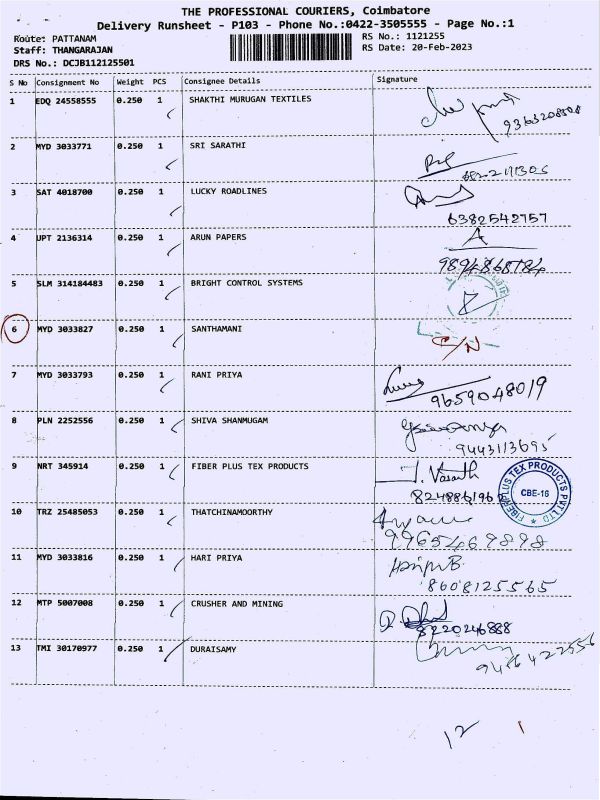 THE PROFESSIONAL COURIERS, Coimbatore
Delivery Runsheet - P103 - Phone No.:0422-3505555 - Page No.:1
Route: PATTANAM
RS No.: 1121255
Staff: THANGARAJAN
RS Date: 20-Feb-2023
DRS No.: DCJB112125501
S No Consignment No Weight PCS Consignee Details Signature
1 EDQ 24558555 0.250 1 SHAKTHI MURUGAN TEXTILES
9363208808
2 MYD 3033771 0.250 1 SRI SARATHI
3 SAT 4018700 0.250 1 LUCKY ROADLINES
6382542757
4 UPT 2136314 0.250 1 ARUN PAPERS
A
9894868784
5 SLM 314184483 0.250 1 BRIGHT CONTROL SYSTEMS
6 MYD 3033827 0.250 1 SANTHAMANI
C/N
7 MYD 3033793 0.250 1 RANI PRIYA
9659048019
8 PLN 2252556 0.250 1 SHIVA SHANMUGAM
9443113695
9 NRT 345914 0.250 1 FIBER PLUS TEX PRODUCTS
J. Vasanth
FIBERPLUS TEX PRODUCTS PVT LTD
CBE-16
10 TRZ 25485053 0.250 1 THATCHINAMOORTHY
9965469898
11 MYD 3033816 0.250 1 HARI PRIYA
8608125565
12 MTP 5007008 0.250 1 CRUSHER AND MINING
8220246888
13 TMI 30170977 0.250 1 DURAISAMY
9486422556
12 1